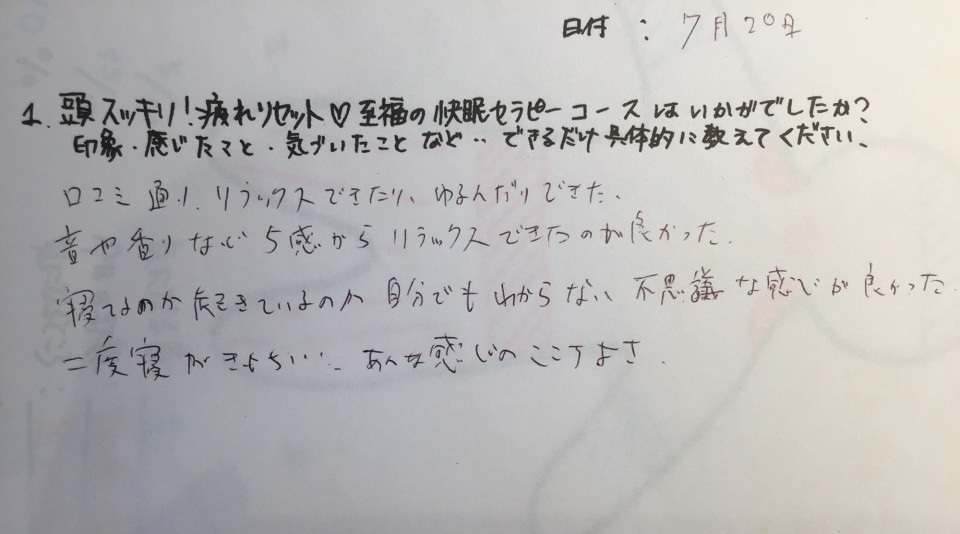 日付 : 7月20日
1. 頭スッキリ!疲れリセット♡至福の快眠セラピーコースはいかがでしたか?
印象・感じたこと・気づいたことなど‥できるだけ具体的に教えてください。
口コミ通り、リラックスできたり、ゆるんだりできた。
音や香りなど5感からリラックスできたのが良かった。
寝てるのか起きているのか自分でもわからない不思議な感じが良かった。
二度寝がきもちいい… あんな感じのここちよさ。